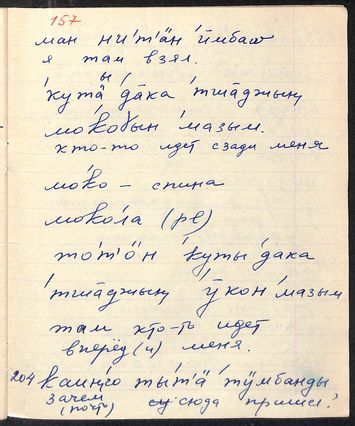 157
ман ни'т'ӓн ӣмбат
я там взял.
'кутӓ(ы) 'д̄ака 'тшāджың
мо'коɣын 'мазым.
кто-то идет сзади меня
мо'ко – спина
моко'ла (pl)
то'т'ӧ̄н 'куты 'дака
'тшāджың 'ӯкон 'мазым
там кто-то идет
вперёд (и) меня.
204 каиң'го ты'т'ӓ 'тӱмбанды
зачем (почто) сюда пришел?